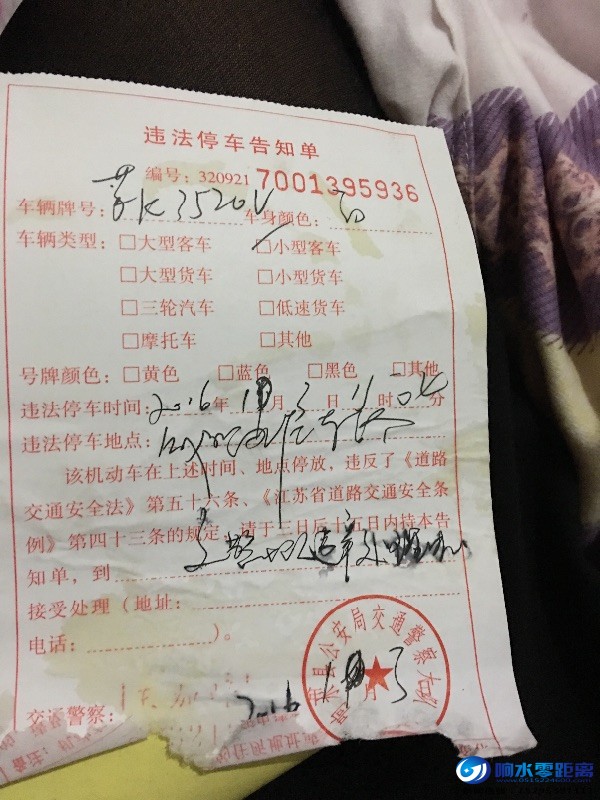 违法停车告知单
编号：320921 7001395936
车辆牌号：苏K3520V 车身颜色：白
车辆类型：□大型客车 □小型客车
□大型货车 □小型货车
□三轮汽车 □低速货车
□摩托车 □其他
号牌颜色：□黄色 □蓝色 □黑色 □其他
违法停车时间：2016年1月3日11时 分
违法停车地点：
该机动车在上述时间、地点停放，违反了《道路
交通安全法》第五十六条、《江苏省道路交通安全条
例》第四十三条的规定，请于三日后十五日内持本告
知单，到
接受处理（地址：
电话： ）。
县公安局交通警察大队
交通警察： 2016 1 月 3
响水零距离